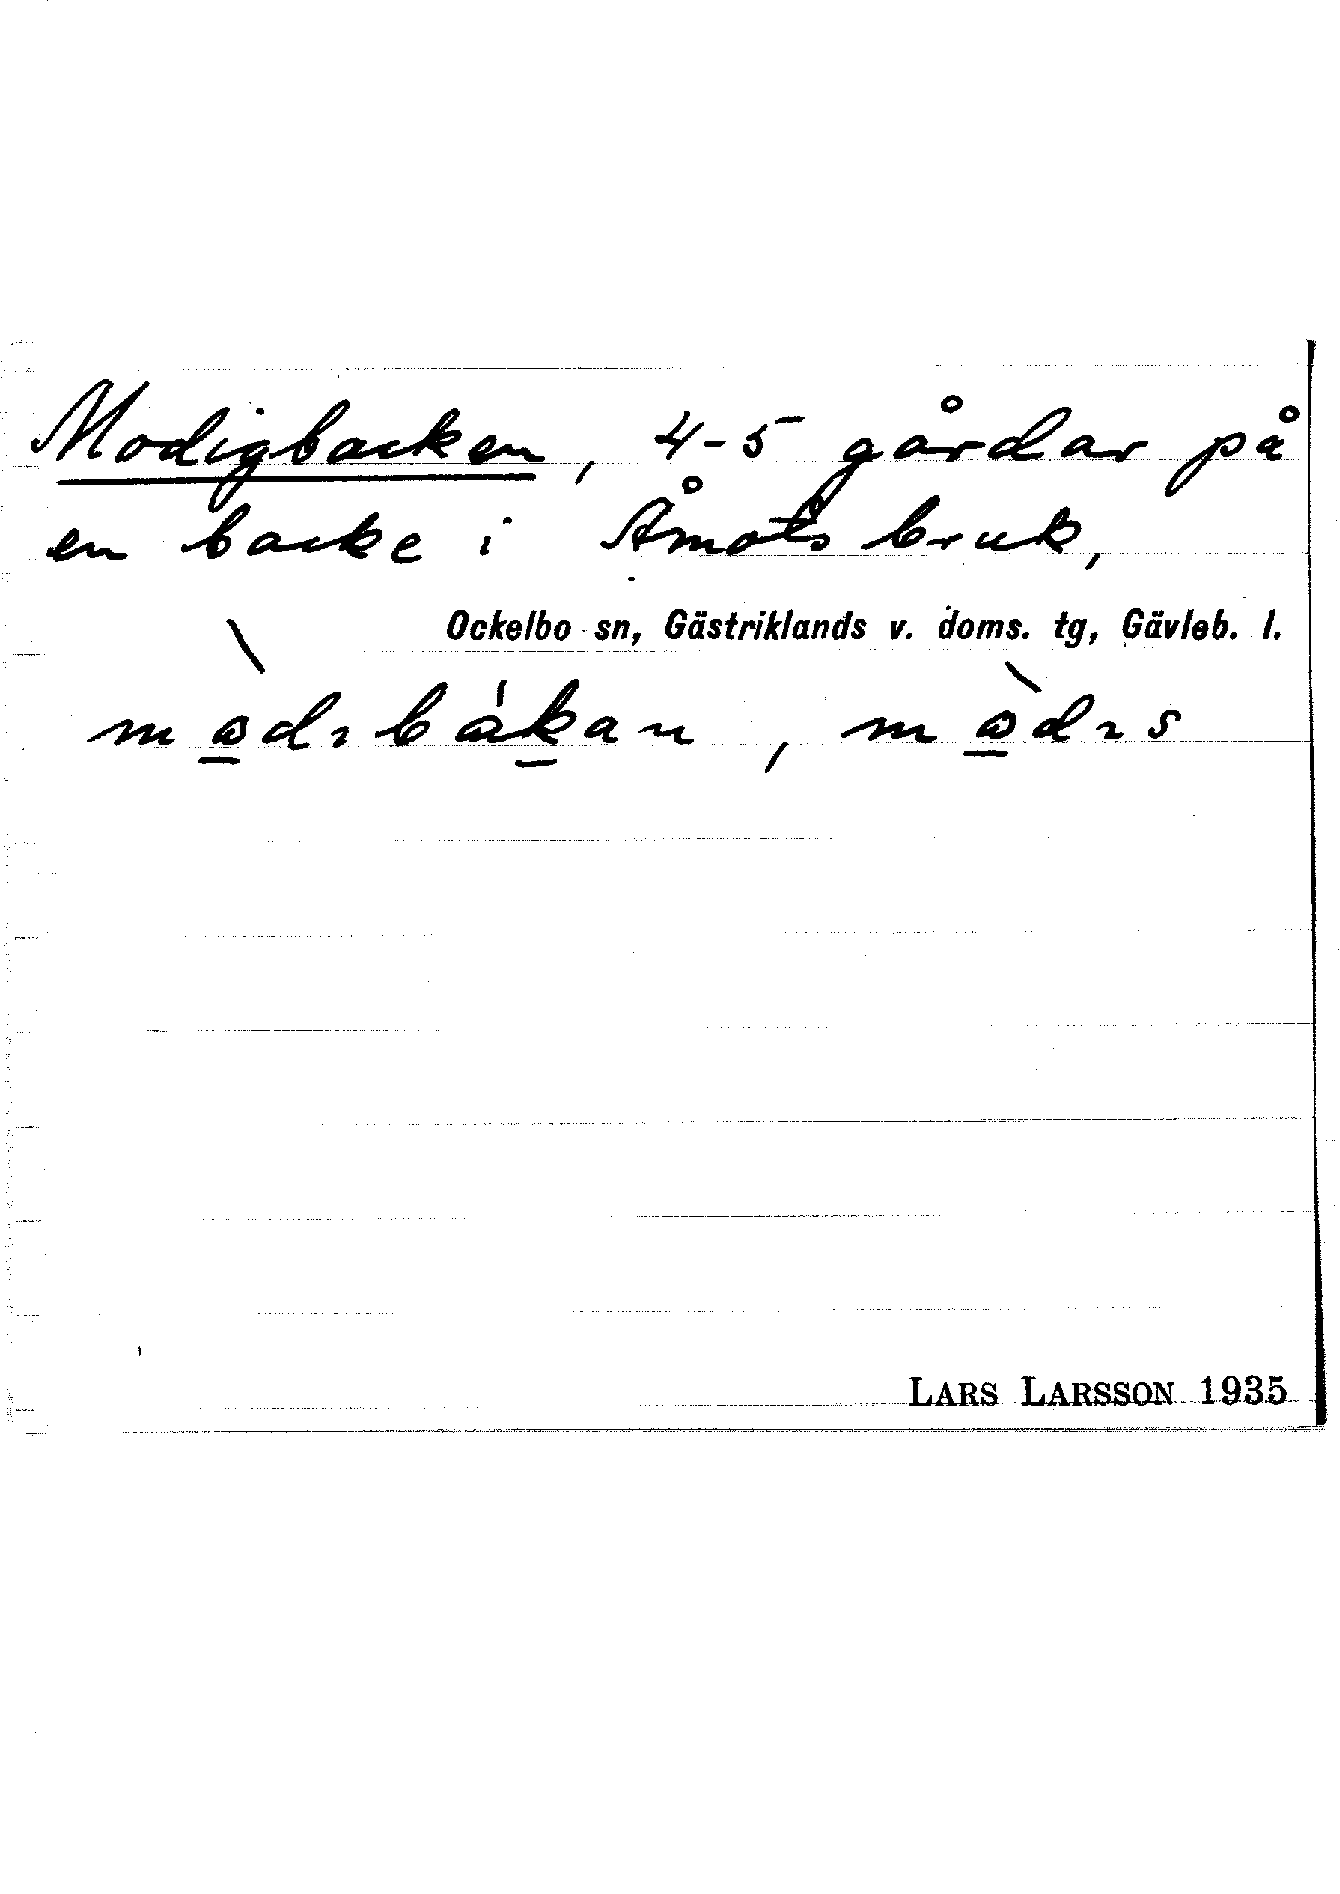 Modigbacken, 4-5 gårdar på
en backe i Åmots bruk,
Ockelbo sn, Gästriklands v. doms. tg, Gävleb. l.
LARS LARSSON 1935